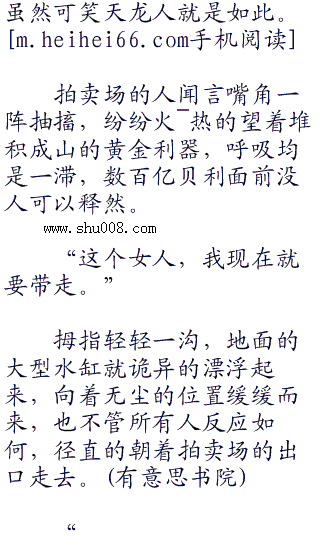 虽然可笑天龙人就是如此。
[m.heihei66.com手机阅读]
拍卖场的人闻言嘴角一
阵抽搐，纷纷火¯热的望着堆
积成山的黄金利器，呼吸均
是一滞，数百亿贝利面前没
人可以释然。
www.shu008.com
“这个女人，我现在就
要带走。”
拇指轻轻一沟，地面的
大型水缸就诡异的漂浮起
来，向着无尘的位置缓缓而
来，也不管所有人反应如
何，径直的朝着拍卖场的出
口走去。(有意思书院)
“